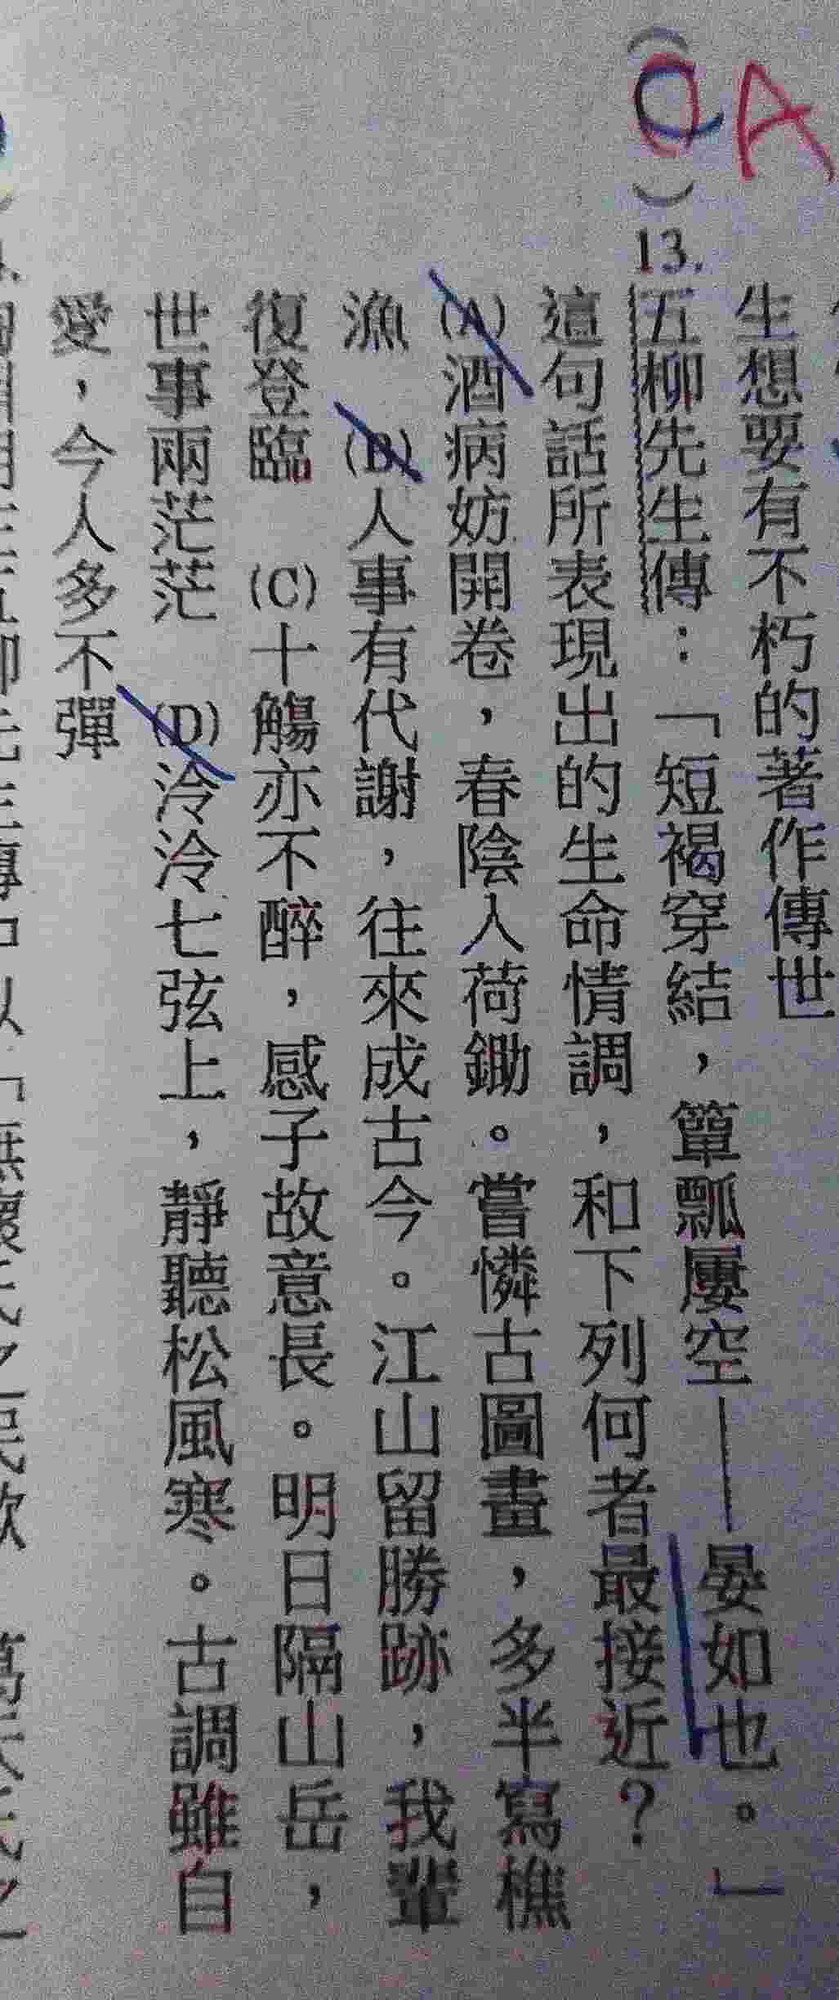 A
生想要有不朽的著作傳世
( )13.五柳先生傳：「短褐穿結，簞瓢屢空——晏如也。」
這句話所表現出的生命情調，和下列何者最接近？
(A)酒病妨開卷，春陰入荷鋤。嘗憐古圖畫，多半寫樵
漁　(B)人事有代謝，往來成古今。江山留勝跡，我輩
復登臨　(C)十觴亦不醉，感子故意長。明日隔山岳，
世事兩茫茫　(D)泠泠七弦上，靜聽松風寒。古調雖自
愛，今人多不彈